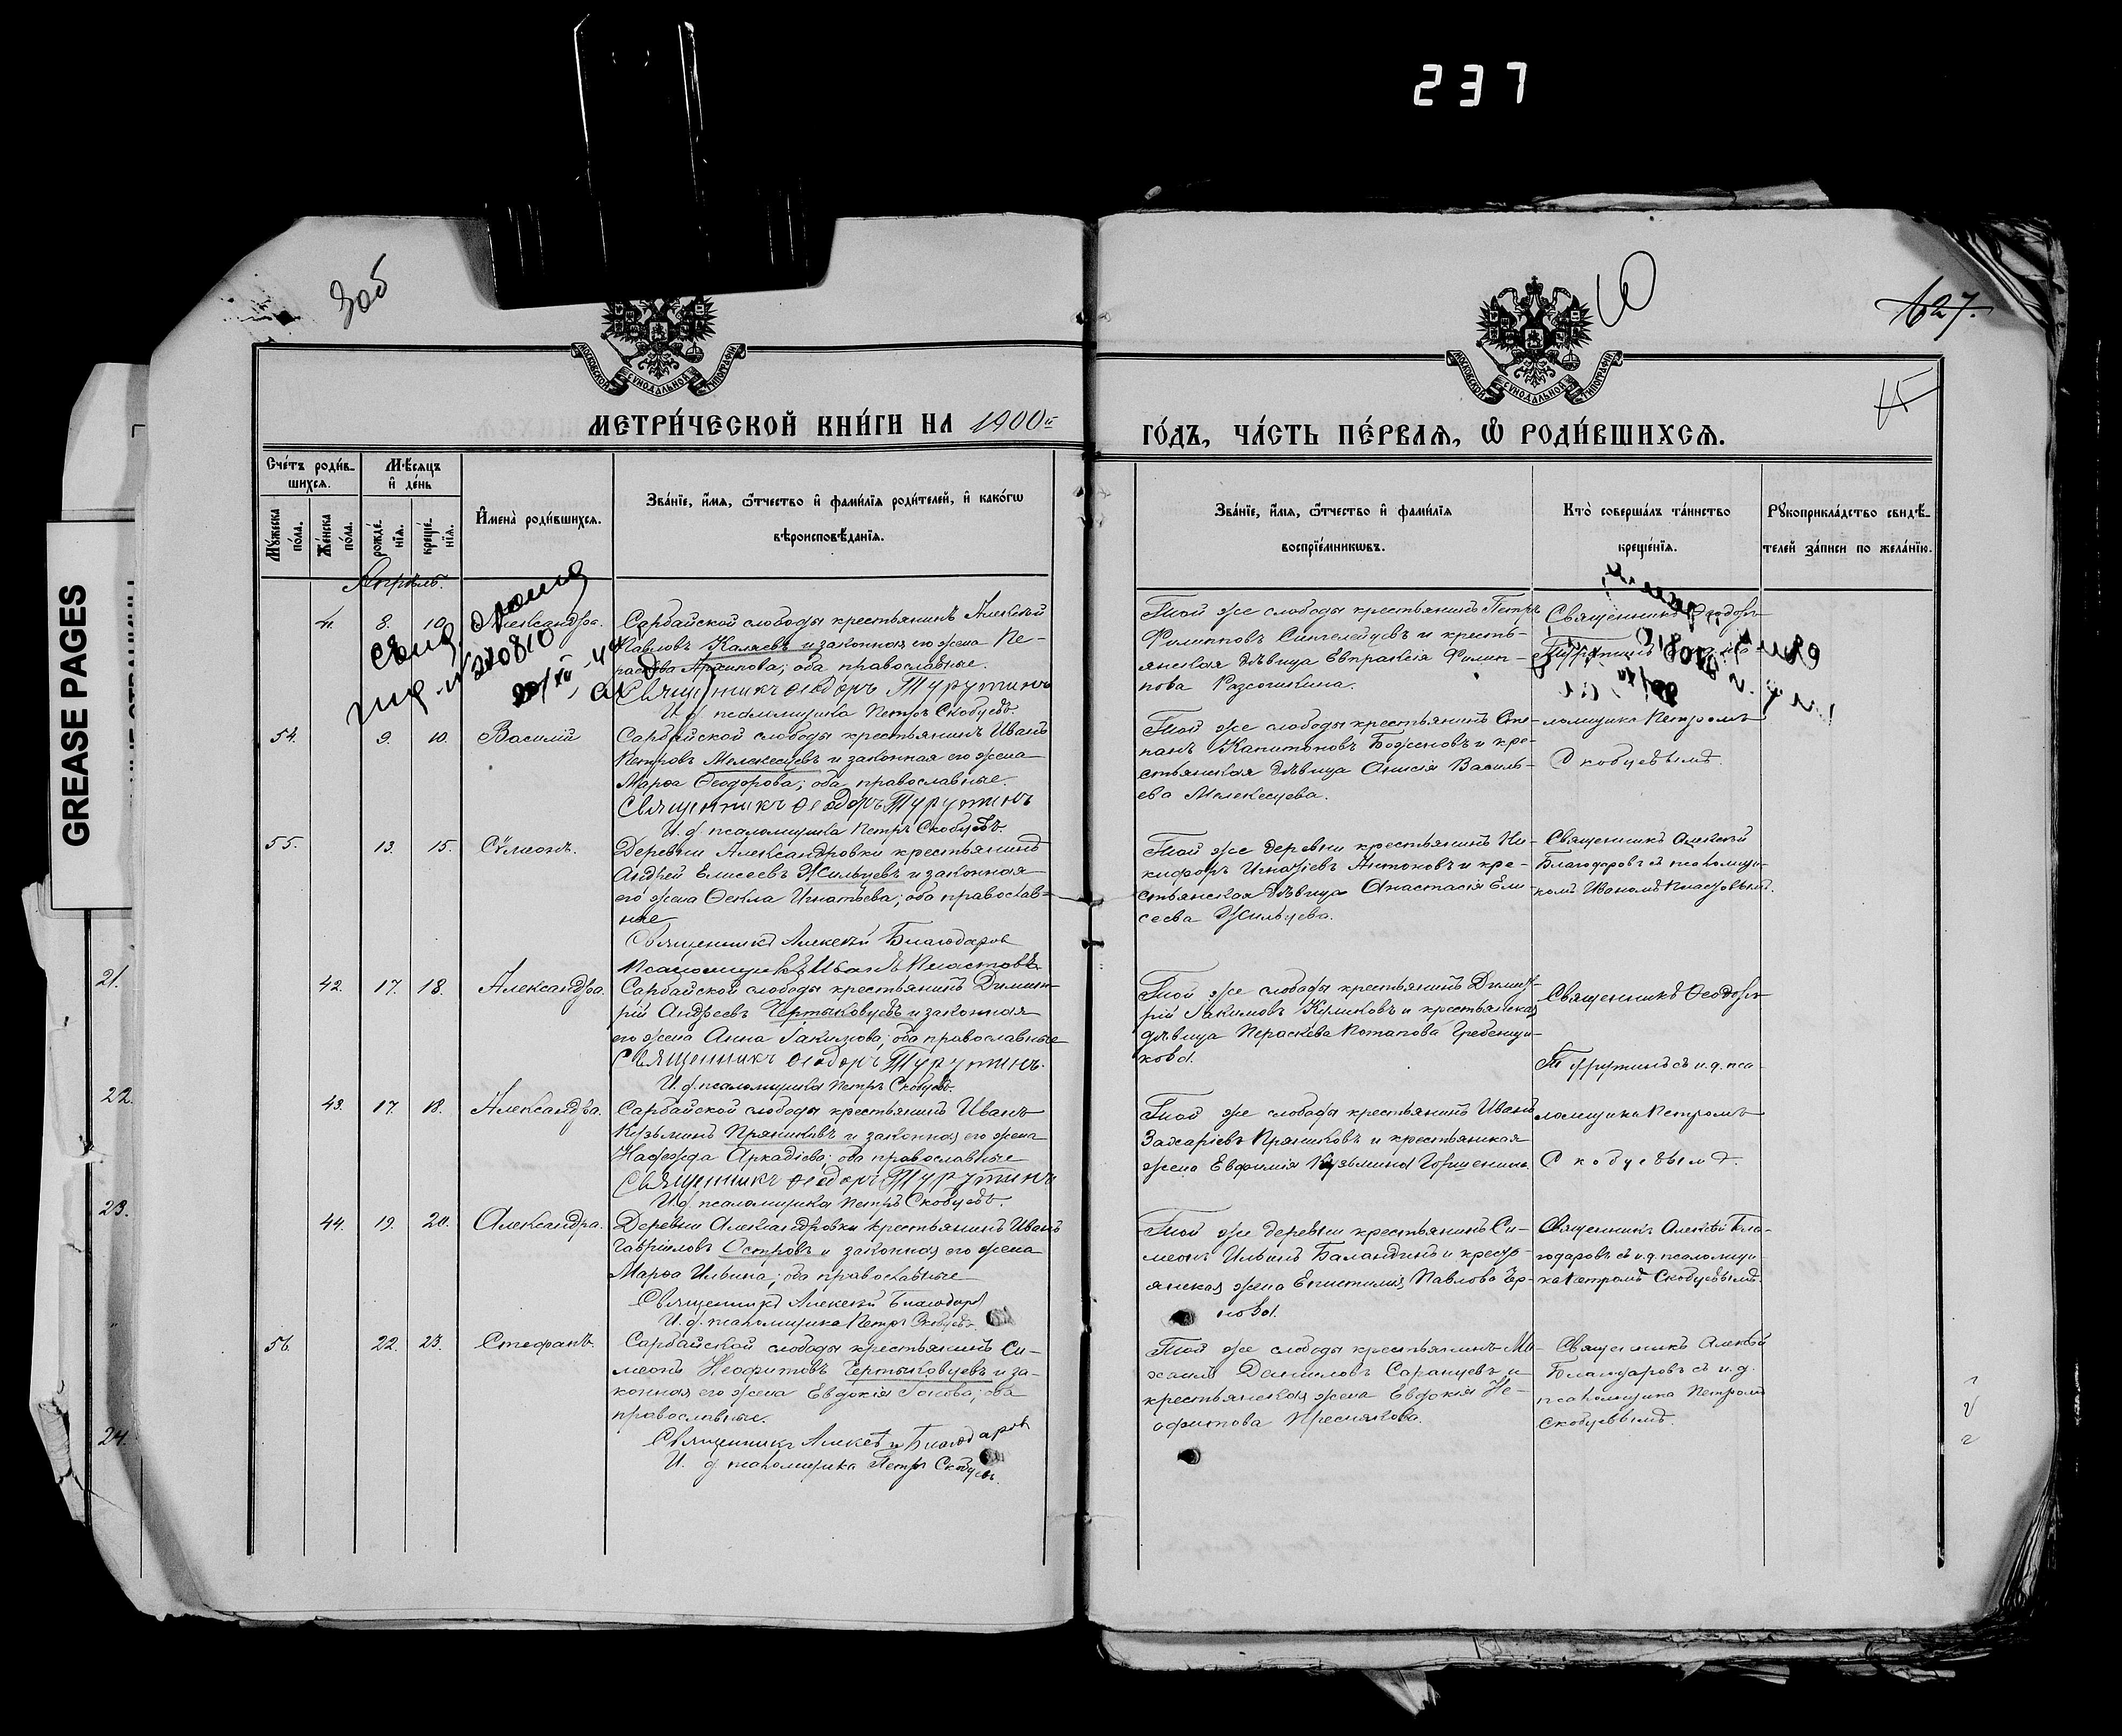 237
Заб
627.
МОСКОВСКОЙ СѴНОДАЛЬНОЙ ТИПОГРАФІИ
МОСКОВСКОЙ СѴНОДАЛЬНОЙ ТИПОГРАФІИ
МЕТРИ́ЧЕСКОЙ КНИ́ГИ НА 1900й
ГО́ДЪ, ЧА́СТЬ ПЕ́РВАЯ, Ѡ҆ РОДИ́ВШИХСЯ.
Сче́тъ роди́в-
шихся.
Мѣ́сяцъ
и҆ де́нь
Мꙋ́жеска
по́ла.
Же́нска
по́ла.
рожде́-
нїя.
креще́-
нїя.
И҆мена̀ роди́вшихся.
Зва́нїе, и҆́мя, ѻ҆́тчество и҆ фами́лїя роди́телей, и҆ како́гѡ
вѣроисповѣ́данїя.
Зва́нїе, и҆́мя, ѻ҆́тчество и҆ фами́лїя
воспрїе́мникѡвъ.
Кто̀ соверша́лъ та́инство
креще́нїя.
Рꙋкоприкла́дство свидѣ́-
телей за́писи по жела́нїю.
Апрѣль.
8. 10. Александра. Сарбайской слободы крестьянинъ Алексѣй
Павловъ Каляевъ и законная его жена Пе-
раскева Архипова; оба православные.
Священникъ Ѳеодоръ Турутинъ
И. д. псаломщика Петръ Скобцевъ.
Той же слободы крестьянинъ Петръ
Филипповъ Сингелейцевъ и кресть-
янская дѣвица Евпраксія Филип-
пова
Священникъ Ѳеодоръ
270810
54. 9. 10. Василій Сарбайской слободы крестьянинъ Иванъ
Петровъ Мелекесцевъ и законная его жена
Марѳа Ѳеодорова; оба православные.
Священникъ Ѳеодоръ Турутинъ
И. д. псаломщика Петръ Скобцевъ.
Той же слободы крестьянинъ Сте-
панъ Капитоновъ Баженовъ и кре-
стьянская дѣвица Анисія Василь-
ева Мелекесцева.
ломщика Петромъ
Скобцевымъ.
55. 13. 15. Сѵмеонъ. Деревни Александровки крестьянинъ
Андрей Елисеевъ Жильцевъ и законная
его жена Ѳекла Игнатьева; оба православ-
ные
Священникъ Алексѣй Благодаровъ
Псаломщикъ Иванъ Пластовъ
Той же деревни крестьянинъ Ни-
кифоръ Игнатіевъ Антоновъ и кре-
стьянская дѣвица Анастасія Ели-
сеева Жильцева.
Священникъ Алексѣй
Благодаровъ съ псаломщи-
комъ Иваномъ Пластовымъ.
42. 17. 18. Александра. Сарбайской слободы крестьянинъ Димит-
рій Андреевъ Чертыковцевъ и законная
его жена Анна Іакимова; оба православные
Священникъ Ѳеодоръ Турутинъ.
И. д. псаломщика Петръ Скобцевъ.
Той же слободы крестьянинъ Димит-
рій Іакимовъ Куликовъ и крестьянская
дѣвица Пераскева Потапова Гребенщи-
кова.
Священникъ Ѳеодоръ
Турутинъ съ и. д. пса-
43. 17. 18. Александра. Сарбайской слободы крестьянинъ Иванъ
Кузьминъ Пряниковъ и законная его жена
Надежда Аркадіева; оба православные
Священникъ Ѳеодоръ Турутинъ
И. д. псаломщика Петръ Скобцевъ.
Той же слободы крестьянинъ Иванъ
Захаріевъ Пряниковъ и крестьянская
жена Евфимія Кузьмина Горшенина.
ломщика Петромъ
Скобцевымъ.
44. 19. 20. Александра. Деревни Александровки крестьянинъ Иванъ
Гавріиловъ Островъ и законная его жена
Марѳа Ильина; оба православные
Священникъ Алексѣй Благодаровъ
И. д. псаломщика Петръ Скобцевъ.
Той же деревни крестьянинъ Си-
меонъ Ильинъ Баландинъ и кресть-
янская жена Епистимія Павлова Чер-
нова.
Священникъ Алексѣй Бла-
годаровъ съ и. д. псаломщи-
ка Петромъ Скобцевымъ.
56. 22. 23. Стефанъ. Сарбайской слободы крестьянинъ Си-
меонъ Неофитовъ Чертыковцевъ и за-
конная его жена Евдокія Іонова; оба
православные.
Священникъ Алексѣй Благодаровъ
И. д. псаломщика Петръ Скобцевъ.
Той же слободы крестьянинъ Ми-
хаилъ Даниловъ Саранцевъ и
крестьянская жена Евдокія Не-
офитова Преснякова.
Священникъ Алексѣй
Благодаровъ съ и. д.
псаломщика Петромъ
Скобцевымъ.
GREASE PAGES
21.
22.
23.
24.